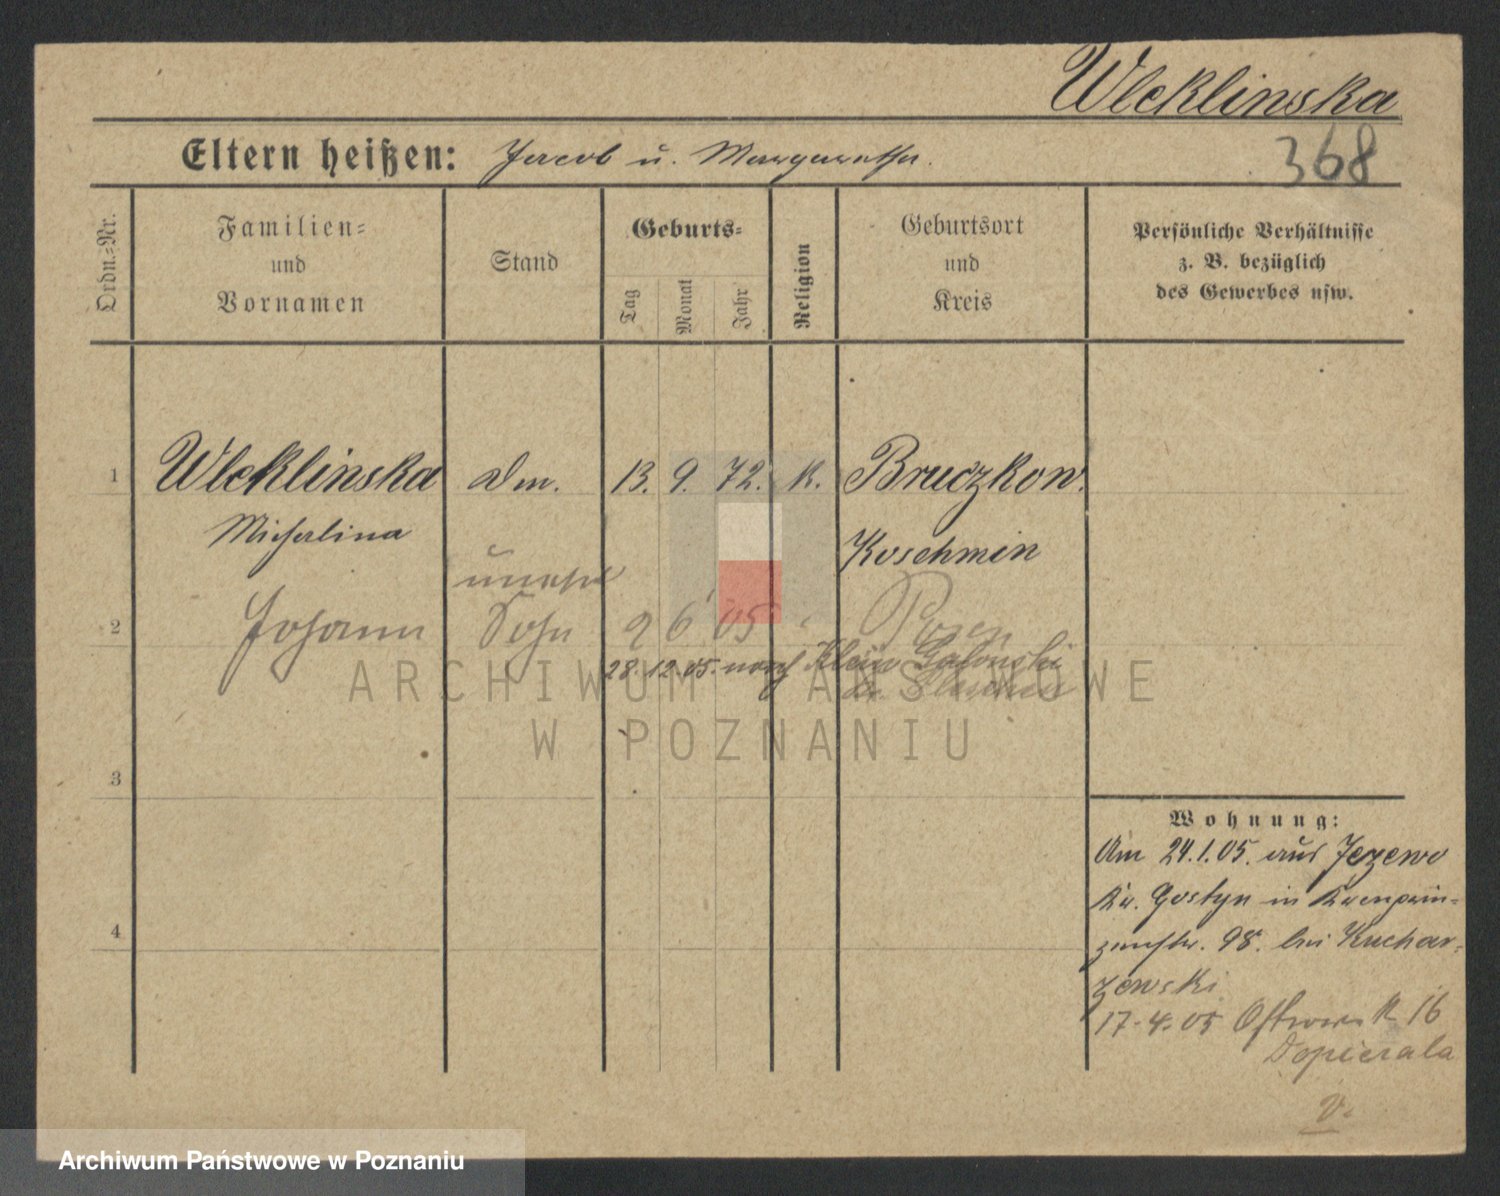 Wleklinska
Eltern heißen: Jacob u. Margaretha.
368
Ordn.=Nr.
Familien=
und
Vornamen
Stand
Geburts=
Tag
Monat
Jahr
Religion
Geburtsort
und
Kreis
Persönliche Verhältnisse
z. B. bezüglich
des Gewerbes usw.
1 Wleklinska Dm. 13. 9. 72. K. Bruczkow.
Michalina Koschmin
unehel
2 Johann Sohn 2 6 05 Posen
28. 12. 05. nach Klein Galonski
3
4
Wohnung:
Am 24.1.05. aus Jezewo
Kr. Gostyn in Kronprin=
zenstr. 98. bei Kuchar=
zewski
17.4.05 Ostrower 16
Dopierala
v.
ARCHIWUM PAŃSTWOWE
W POZNANIU
Archiwum Państwowe w Poznaniu